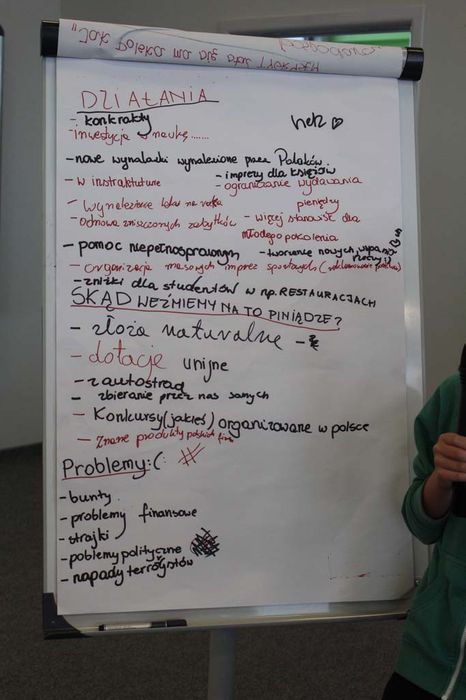 DZIAŁANIA
- konkrakty
- inwestycja w naukę.......
heh ♡
- nowe wynalaski wynalezione przez Polaków
- imprezy dla księżów
- w instraktuture
- ograniczanie wydawania pieniędzy
- wynalezienie leku na raka
- odnowa zniszczonych zabytków
- więcej stanowisk dla młodego pokolenia
- pomoc niepełnosprawnym
- tworzenie nowych, wspa
- organizacja masowych imprez sportowych (
- zniżki dla studentów w np. RESTAURACJACH
SKĄD WEŹMIEMY NA TO PINIĄDZE?
- złoża naturalne -
- dotacje unijne
- z autostrad
- zbieranie przez nas samych
- Konkursy (jakieś) organizowane w polsce
- Znane produkty polskich firm
Problemy :(
- bunty
- problemy finansowe
- strajki
- poblemy polityczne
- napady terrorystów